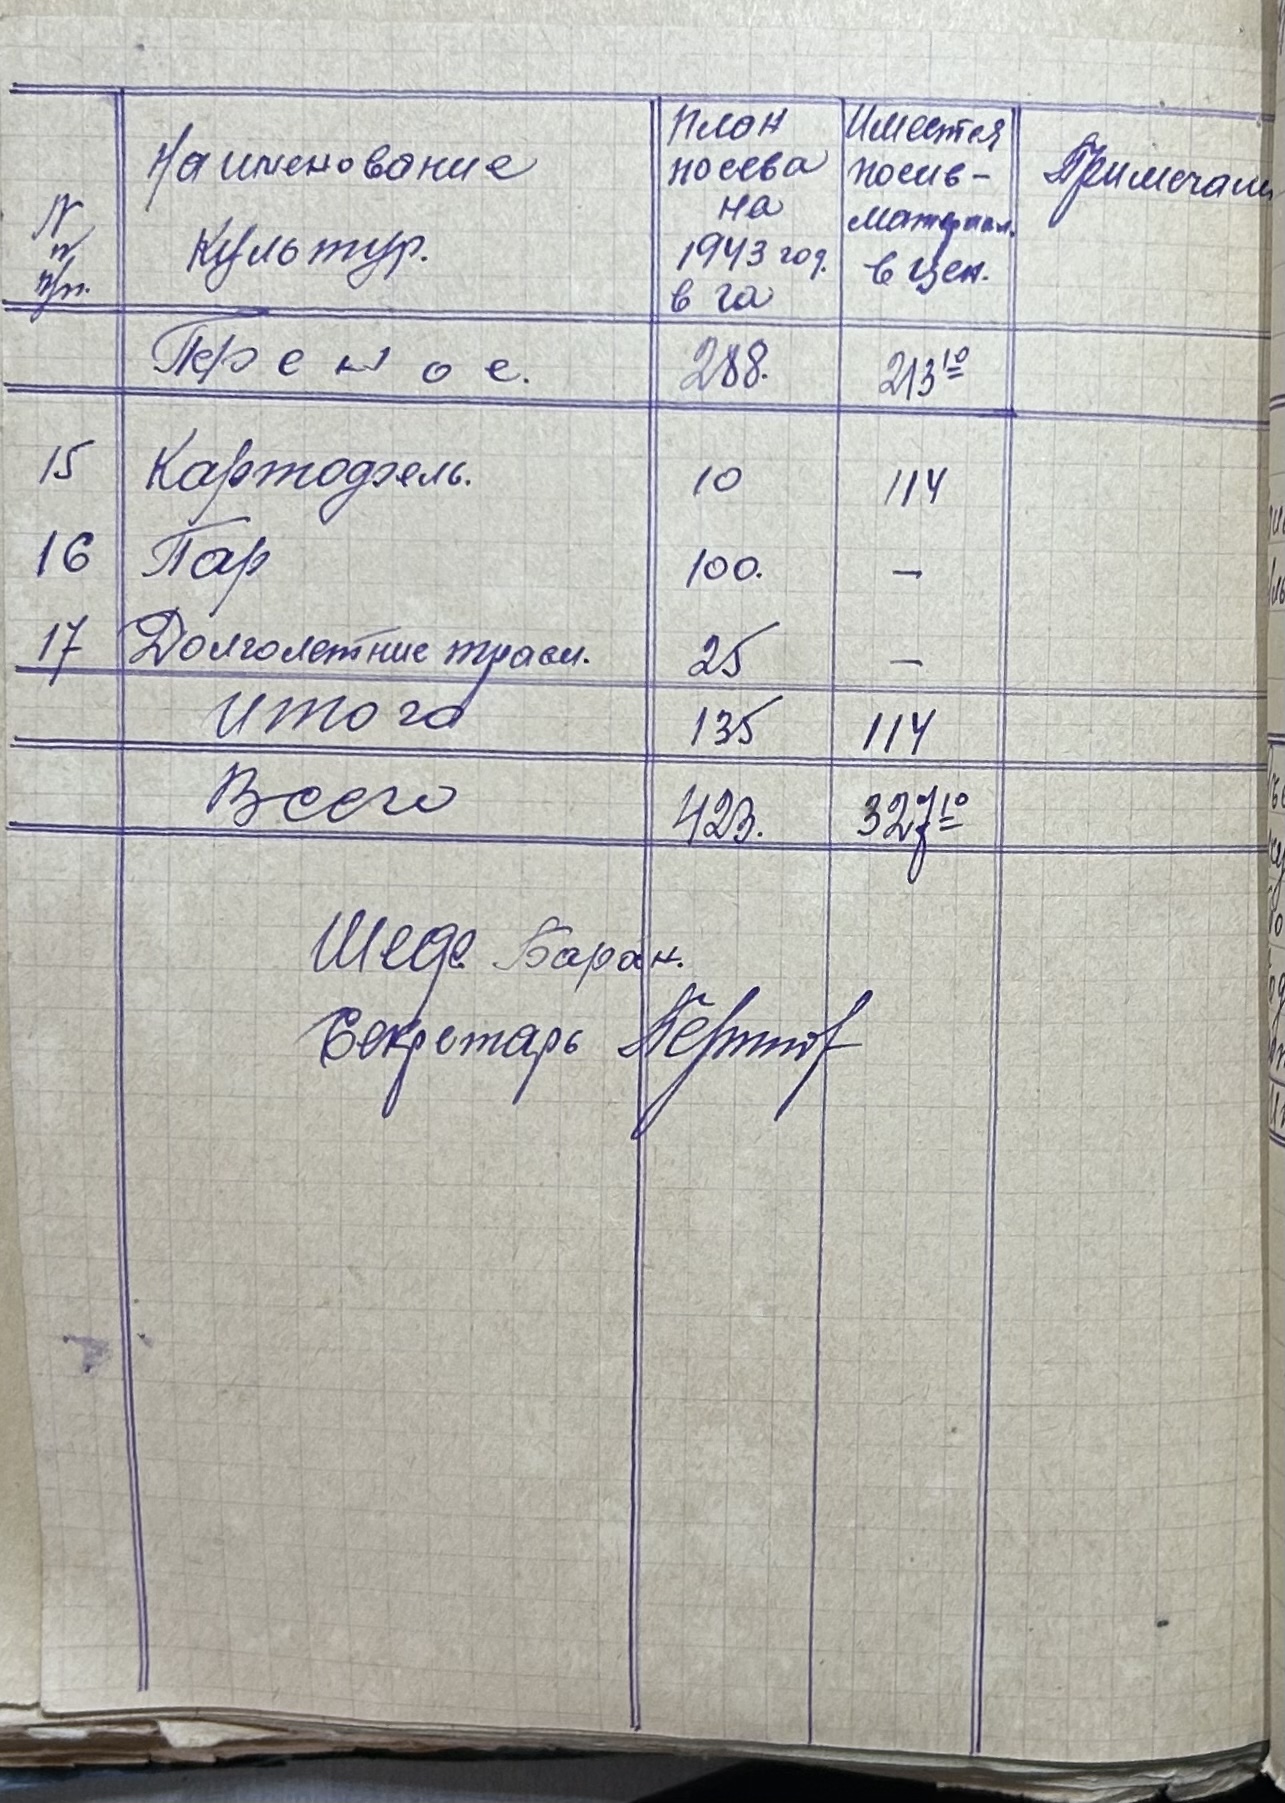 N п п/п. Наименование культур. План посева на 1943 год. в га Имеется посев-материал. в цен. Примечани
Пренос. 288. 213 10
15 Картофель. 10 114
16 Пар 100. —
17 Долголетние травы. 25 —
Итого 135 114
Всего 423. 327 10
Шеф. Баран.
Секретарь